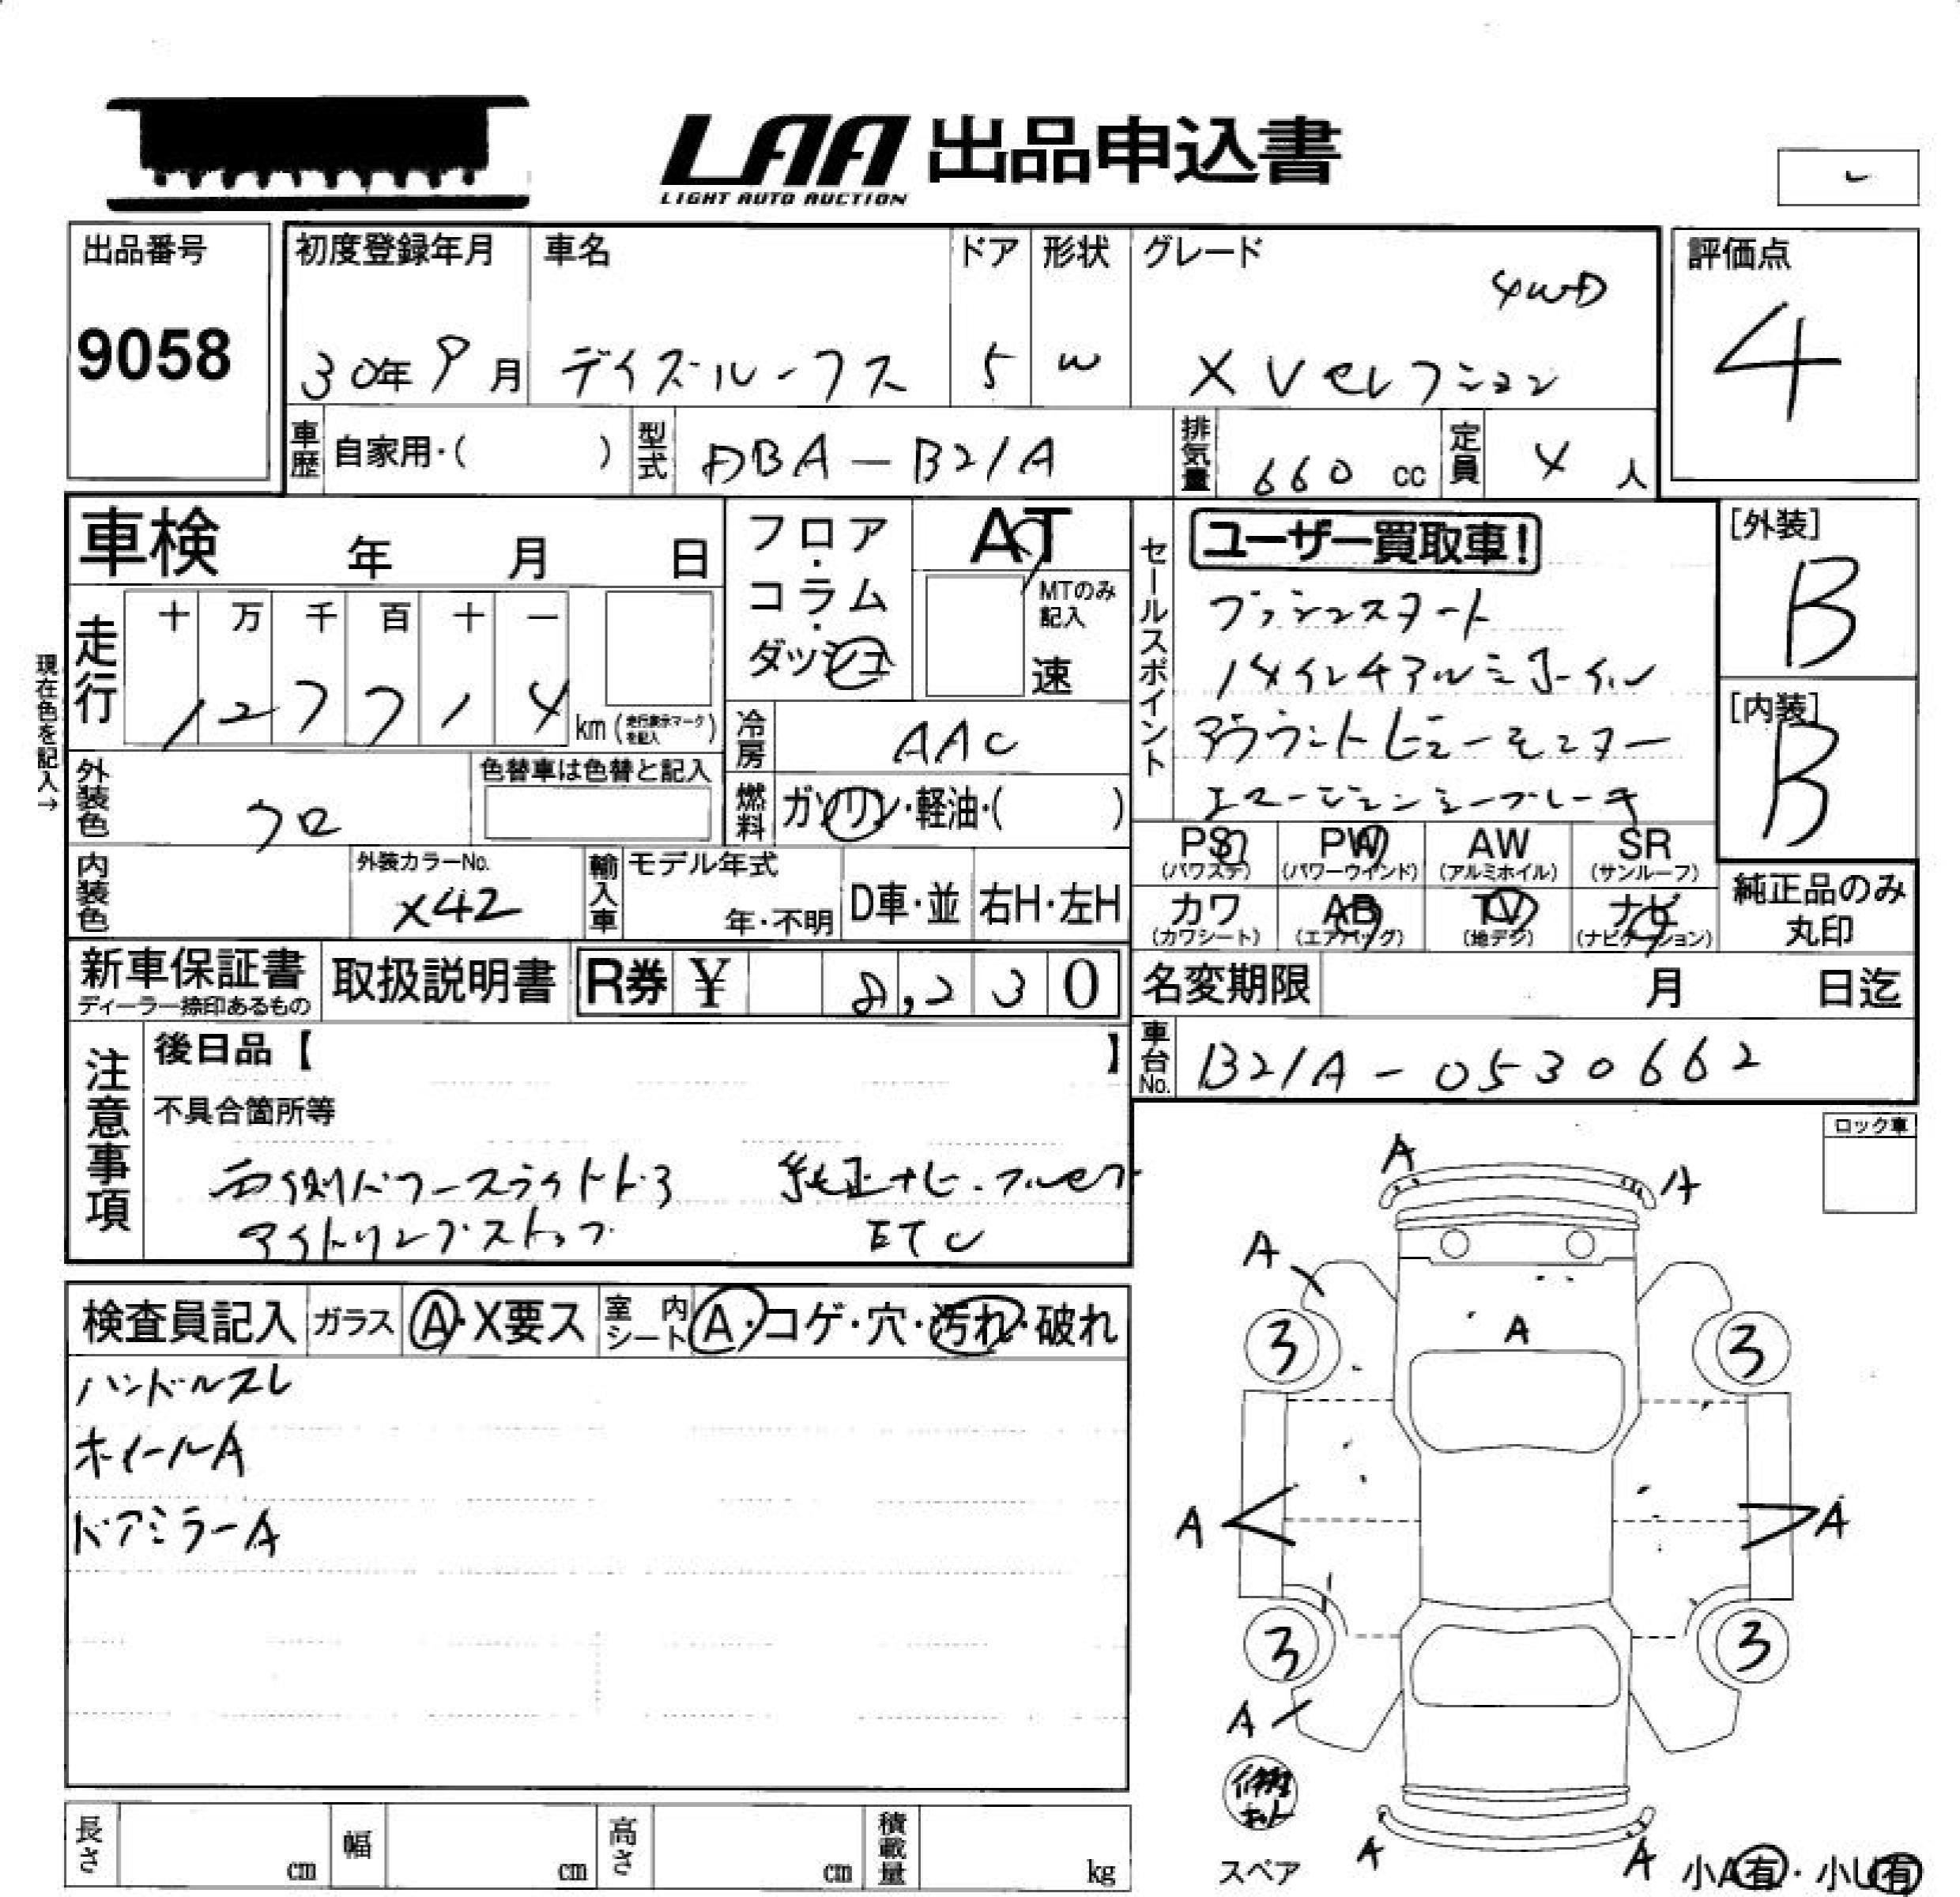 LAA 出品申込書
LIGHT AUTO AUCTION
出品番号
9058
初度登録年月
30年9月
車名
デイズルークス
ドア
5
形状
W
グレード
4WD
X Vセレクション
評価点
4
車歴 自家用・( )
型式 DBA-B21A
排気量 660 cc
定員 4 人
車検 年 月 日
フロア・コラム・ダッシュ
AT
MTのみ記入
速
セールスポイント
ユーザー買取車!
プッシュスタート
14インチアルミホイル
アラウンドビューモニター
エマージェンシーブレーキ
[外装]
B
[内装]
B
現在色を記入→
走行
十 万 千 百 十 一
127714 km (走行表示マークを記入)
冷房 AAC
外装色 クロ
色替車は色替と記入
燃料 ガソリン・軽油・( )
PS (パワステ)
PW (パワーウインド)
AW (アルミホイル)
SR (サンルーフ)
内装色
外装カラーNo.
X42
輸入車
モデル年式
年・不明
D車・並
右H・左H
カワ (カワシート)
AB (エアバッグ)
TV (地デジ)
ナビ (ナビゲーション)
純正品のみ丸印
新車保証書
ディーラー捺印あるもの
取扱説明書
R券 ¥ 8,230
名変期限 月 日迄
車台No. B21A-0530662
注意事項
後日品【 】
不具合箇所等
両側パワースライドドア 純正ナビ・フルセグ
アイドリングストップ ETC
ロック車
検査員記入
ガラス A・X要ス
室内シート A・コゲ・穴・汚れ・破れ
ハンドルスレ
ホイールA
ドアミラーA
A
A
A
3
A
3
A
A
3
3
A
修理キット
スペア
A
A
小A有・小U有
長さ cm
幅 cm
高さ cm
積載量 kg